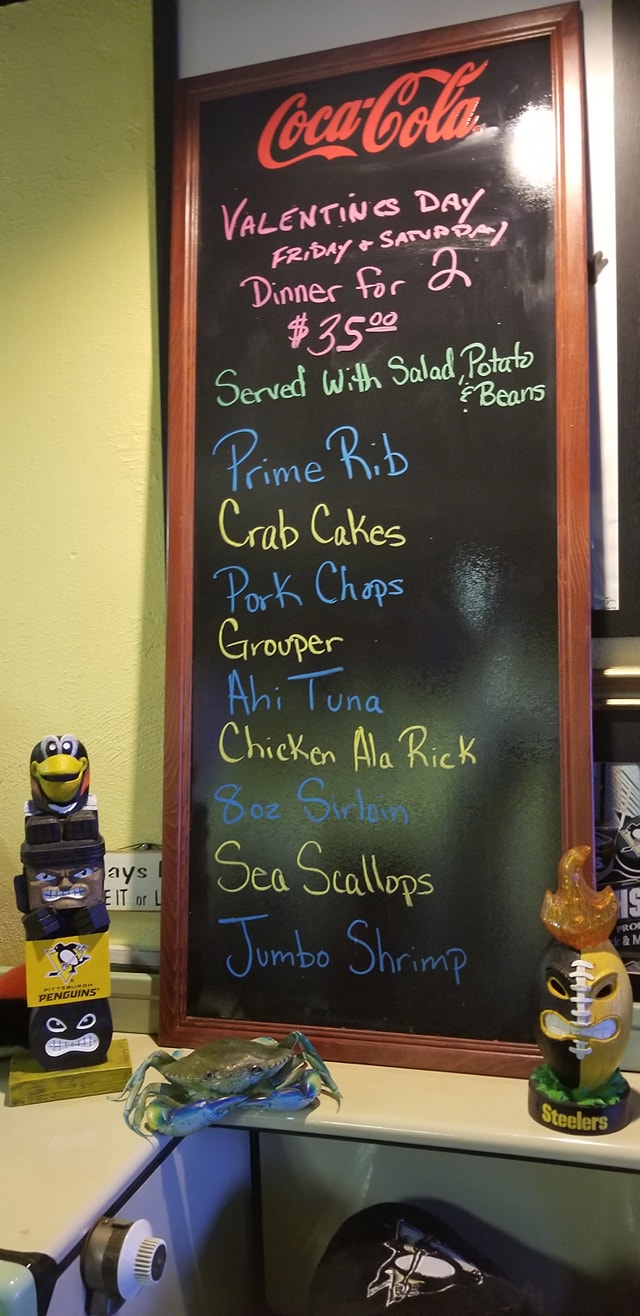 Coca-Cola
VALENTINES DAY
FRIDAY + SATURDAY
Dinner for 2
$35.00
Served With Salad, Potato
& Beans
Prime Rib
Crab Cakes
Pork Chops
Grouper
Ahi Tuna
Chicken Ala Rick
8oz Sirloin
Sea Scallops
Jumbo Shrimp
PITTSBURGH
PENGUINS
Steelers